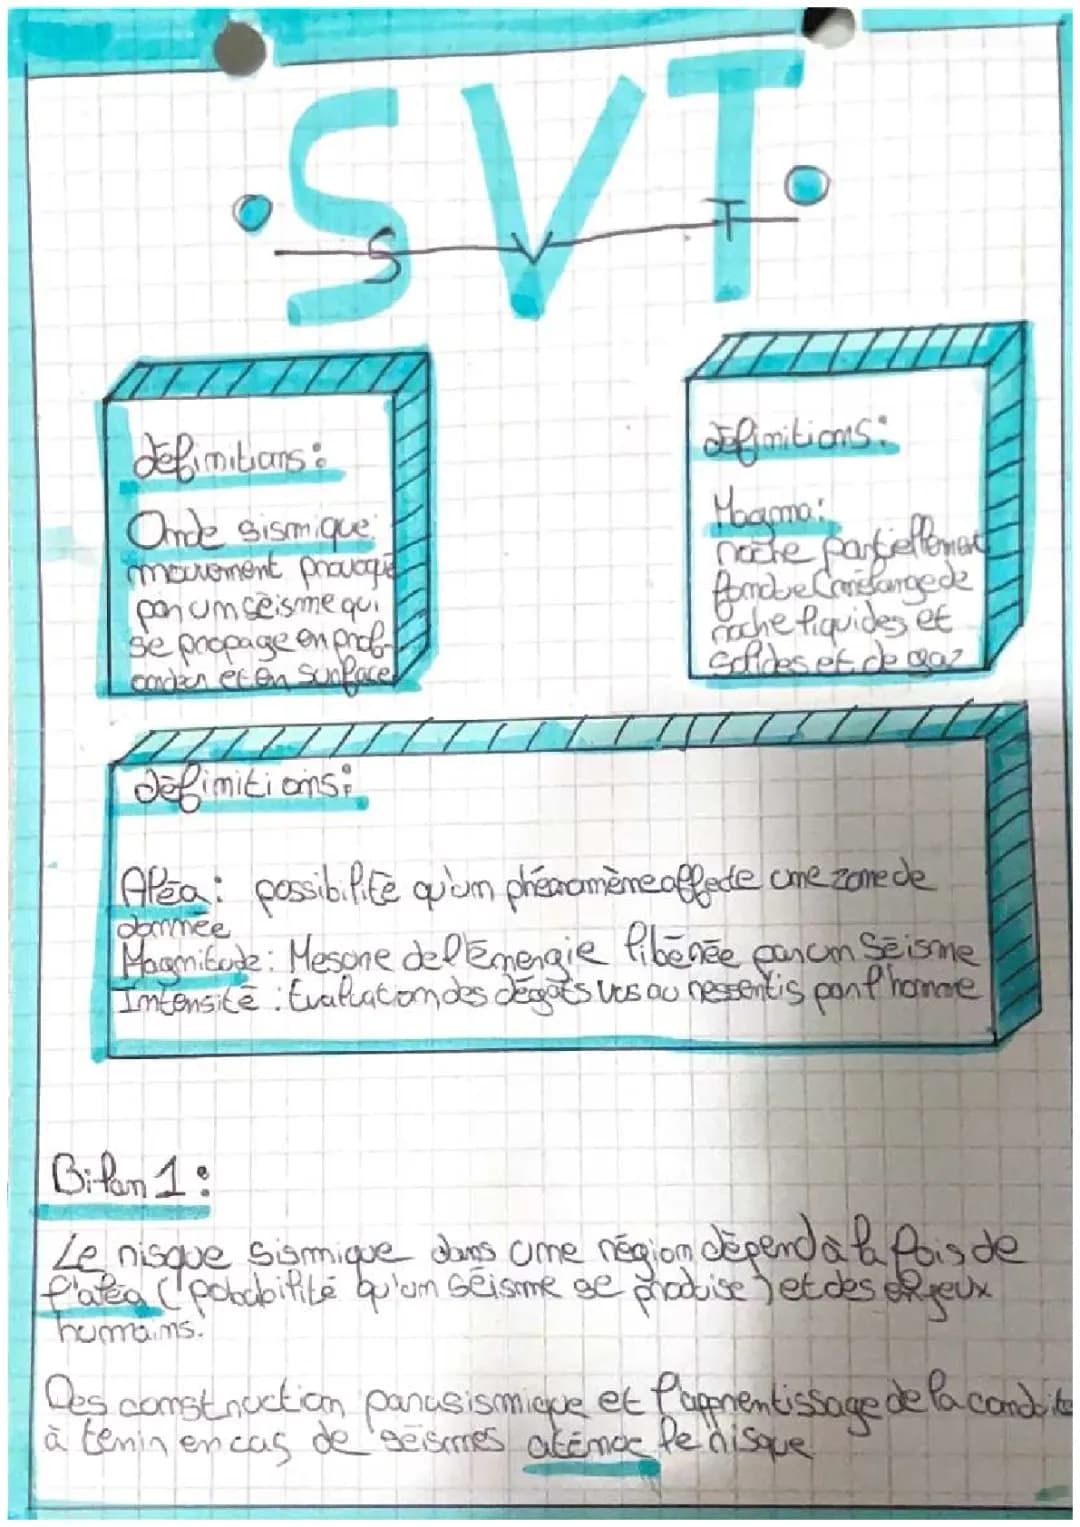 SVT
S V T
définitions:
Onde sismique:
mouvement provoqué
par un séisme qui
se propage en prof-
onder et en surface
définitions:
Magma:
roche partiellement
fondue (mélange de
roche liquides et
solides et de gaz
définitions:
Aléa: possibilité qu'un phénomène affecte une zone de
donnée
Magnitude: Mesure de l'énergie libérée par un Séisme
Intensité: Evaluation des dégâts vus ou ressentis par l'homme
Bilan 1:
Le risque sismique dans une région dépend à la fois de
l'aléa (pobabilité qu'un séisme se produise) et des enjeux
humains.
Des construction parasismique et l'apprentissage de la conduite
à tenir en cas de séismes le risque